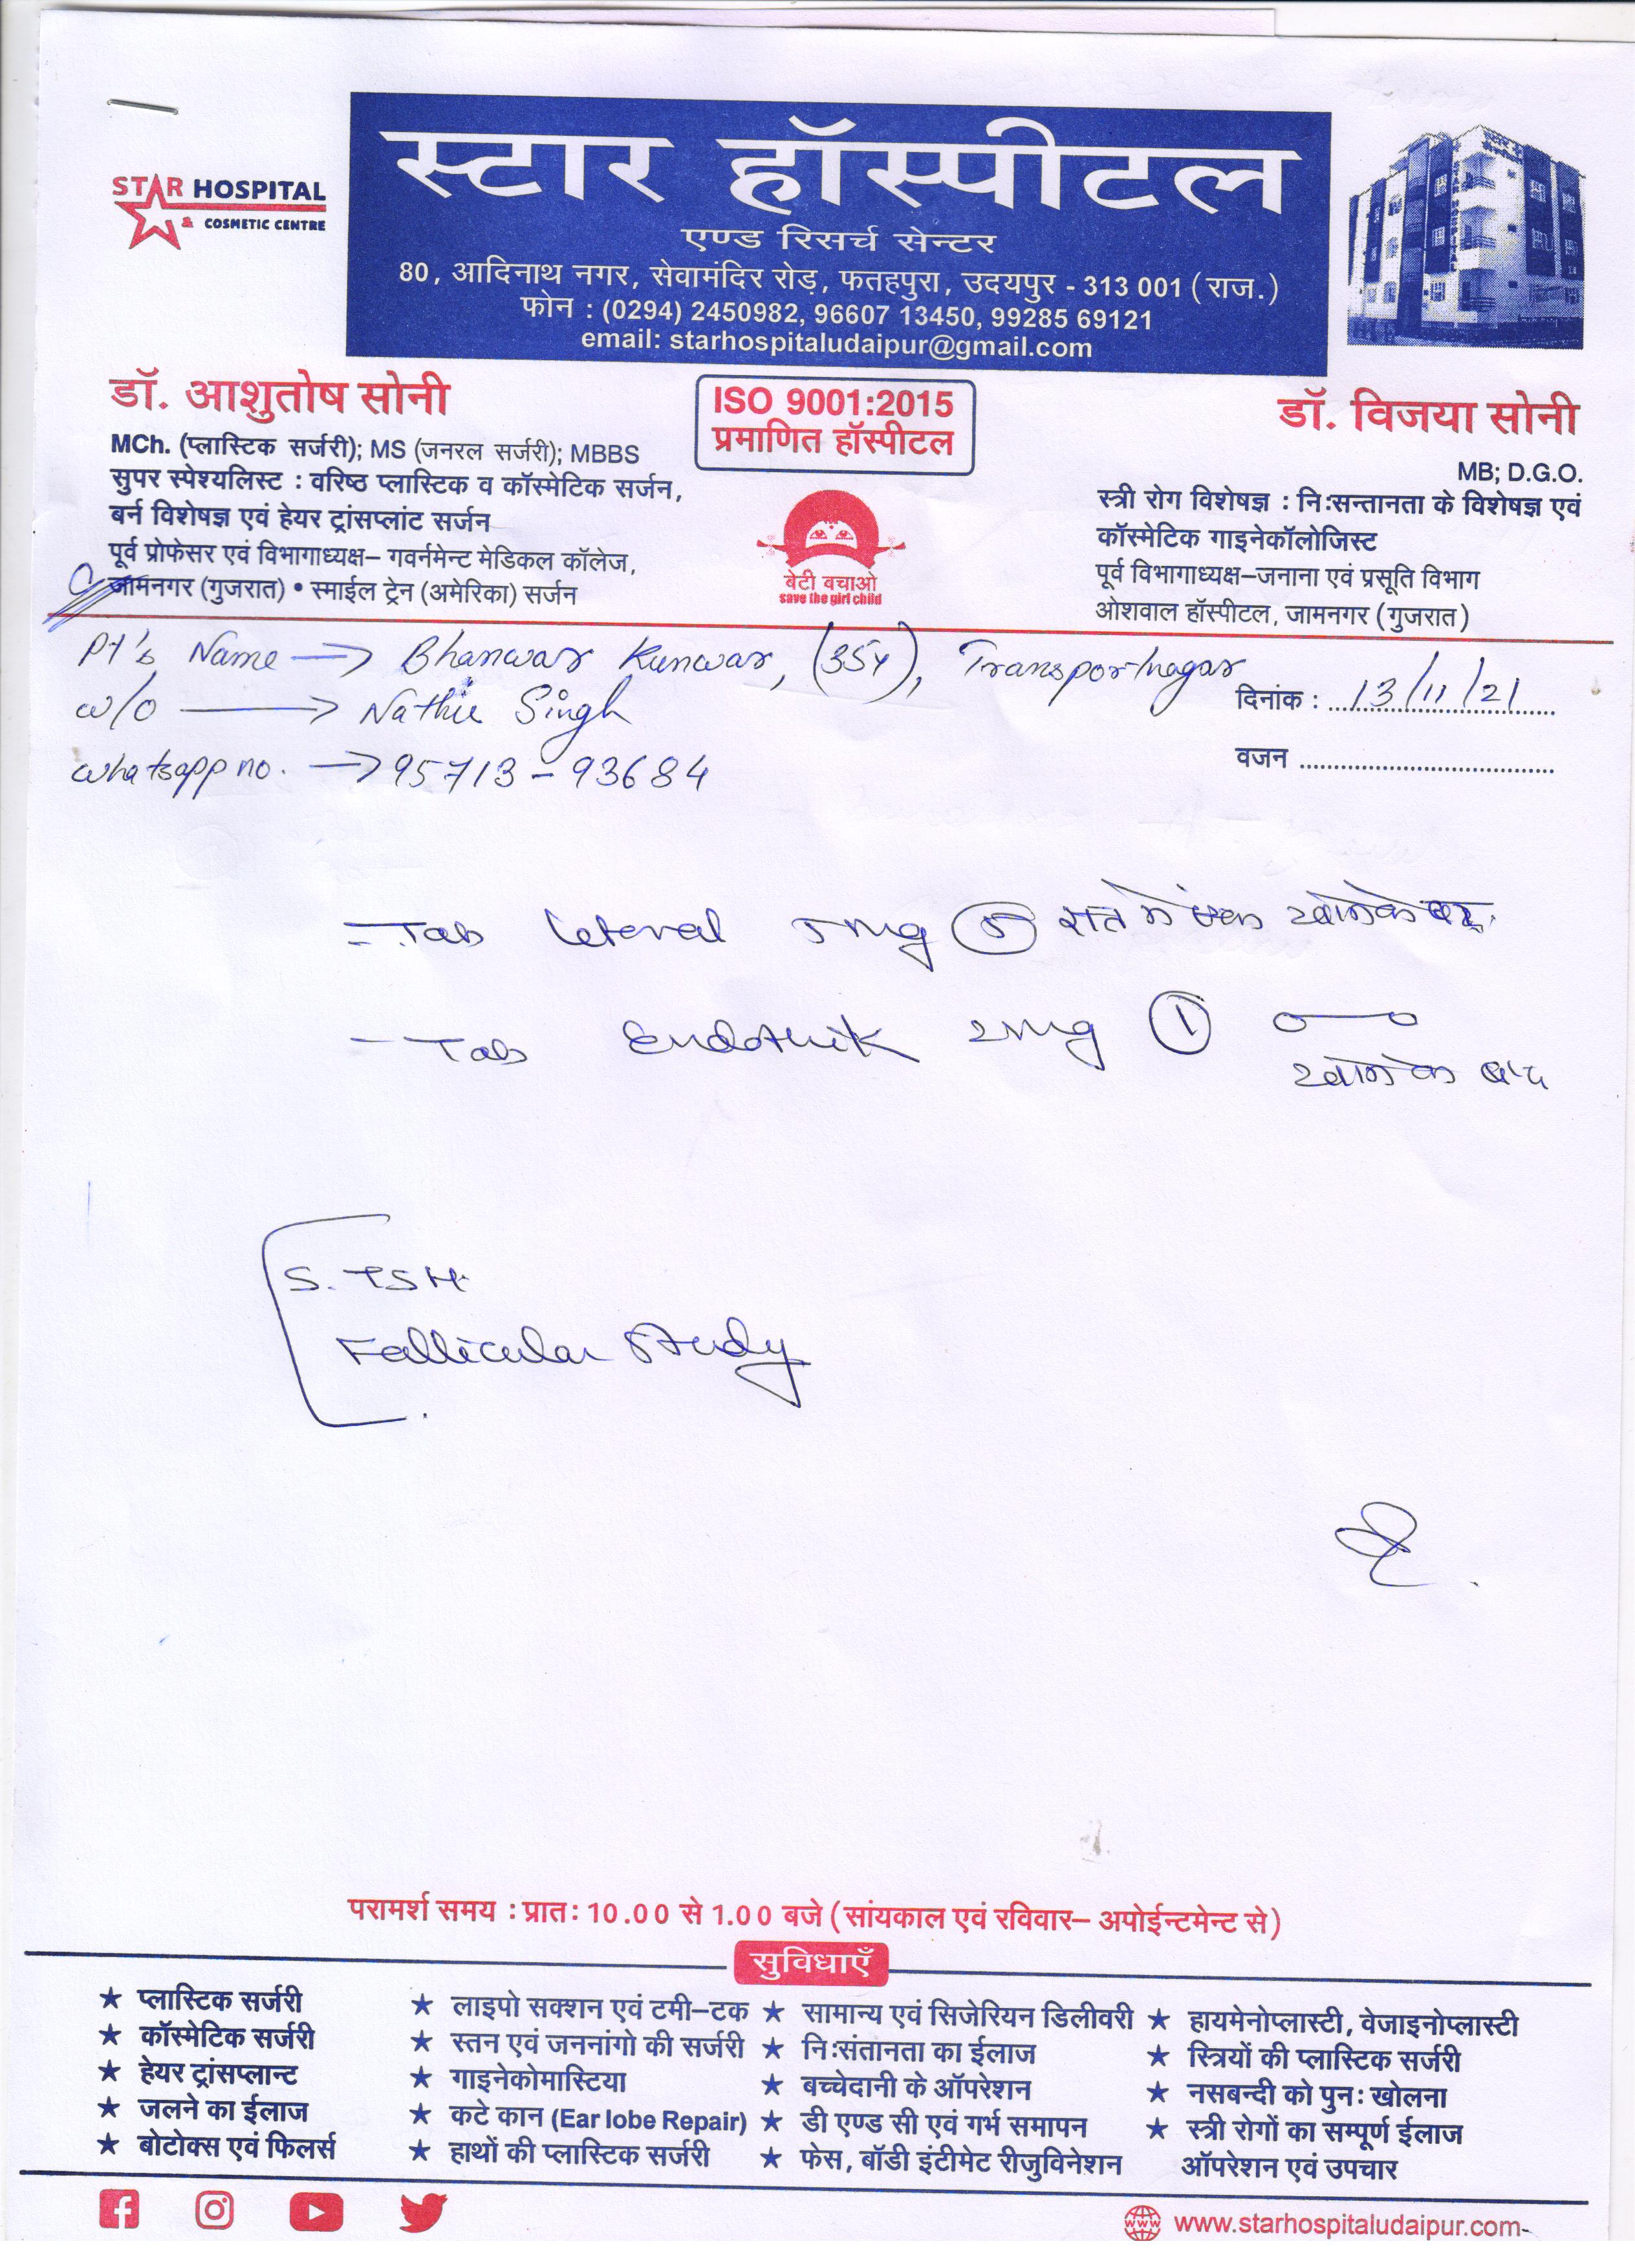 स्टार हॉस्पीटल
STAR HOSPITAL
& COSMETIC CENTRE
एण्ड रिसर्च सेन्टर
80, आदिनाथ नगर, सेवामंदिर रोड़, फतहपुरा, उदयपुर - 313 001 (राज.)
फोन : (0294) 2450982, 96607 13450, 99285 69121
email: starhospitaludaipur@gmail.com
डॉ. आशुतोष सोनी
MCh. (प्लास्टिक सर्जरी); MS (जनरल सर्जरी); MBBS
सुपर स्पेश्यलिस्ट : वरिष्ठ प्लास्टिक व कॉस्मेटिक सर्जन,
बर्न विशेषज्ञ एवं हेयर ट्रांसप्लांट सर्जन
पूर्व प्रोफेसर एवं विभागाध्यक्ष– गवर्नमेन्ट मेडिकल कॉलेज,
जामनगर (गुजरात) • स्माईल ट्रेन (अमेरिका) सर्जन
ISO 9001:2015
प्रमाणित हॉस्पीटल
बेटी बचाओ
save the girl child
डॉ. विजया सोनी
MB; D.G.O.
स्त्री रोग विशेषज्ञ : निःसन्तानता के विशेषज्ञ एवं
कॉस्मेटिक गाइनेकॉलोजिस्ट
पूर्व विभागाध्यक्ष–जनाना एवं प्रसूति विभाग
ओशवाल हॉस्पीटल, जामनगर (गुजरात)
Pt's Name → Bhanwar Kunwar, (35Y), Transportnagar
दिनांक : 13/11/21
w/o → Nathu Singh
वजन
Whatsapp no. → 95713-93684
- Tab Leteval 5mg (5) रात में एक खाने के बाद
- Tab Endothik 2mg (1) o—o
खाने के बाद
S. TSH
Follicular Study
परामर्श समय : प्रातः 10.00 से 1.00 बजे (सांयकाल एवं रविवार– अपोईन्टमेन्ट से)
सुविधाएँ
★ प्लास्टिक सर्जरी
★ कॉस्मेटिक सर्जरी
★ हेयर ट्रांसप्लान्ट
★ जलने का ईलाज
★ बोटोक्स एवं फिलर्स
★ लाइपो सक्शन एवं टमी–टक
★ स्तन एवं जननांगो की सर्जरी
★ गाइनेकोमास्टिया
★ कटे कान (Ear lobe Repair)
★ हाथों की प्लास्टिक सर्जरी
★ सामान्य एवं सिजेरियन डिलीवरी
★ निःसंतानता का ईलाज
★ बच्चेदानी के ऑपरेशन
★ डी एण्ड सी एवं गर्भ समापन
★ फेस, बॉडी इंटीमेट रीजुविनेशन
★ हायमेनोप्लास्टी, वेजाइनोप्लास्टी
★ स्त्रियों की प्लास्टिक सर्जरी
★ नसबन्दी को पुनः खोलना
★ स्त्री रोगों का सम्पूर्ण ईलाज
ऑपरेशन एवं उपचार
www.starhospitaludaipur.com